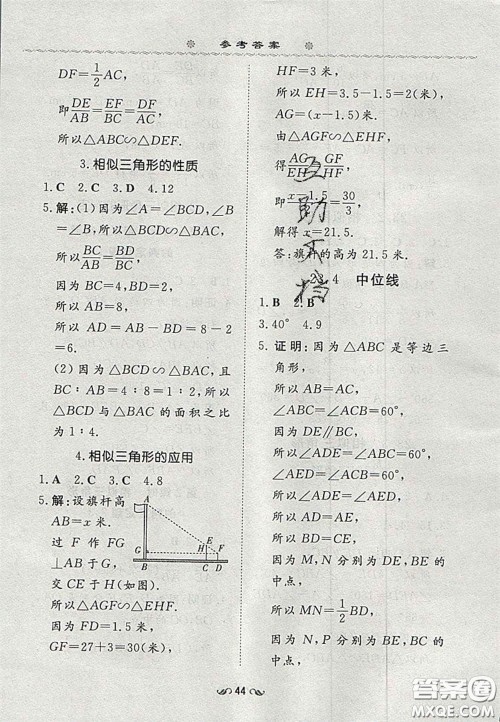 参考答案
DF=1/2AC,
即DE/AB=EF/BC=DF/AC,
所以△ABC∽△DEF.
3.相似三角形的性质
1.C 2.C 3.D 4.12
5.解:(1)因为∠A=∠BCD,∠B
=∠B,所以△BCD∽△BAC,
所以BC/AB=BD/BC.
因为BC=4,BD=2,
所以AB=8,
所以 AD=AB-BD=8-2
=6.
(2)因为△BCD∽△BAC,且
BC:AB=4:8=1:2,所以
△BCD 与△BAC 的面积之比
为1:4.
4.相似三角形的应用
1.A 2.C 3.C 4.8
5.解:设旗杆高
AB=x米.
过 F 作 FG
⊥AB 于 G,
交 CE 于 H(如图).
A
G
B
H
E
F
C
D
所以△AGF∽△EHF.
因为 FD=1.5米,
GF=27+3=30(米),
HF=3米,
所以 EH=3.5-1.5=2(米),
AG=(x-1.5)米.
由△AGF∽△EHF,
得AG/EH=GF/HF,
即x-1.5/2=30/3,
解得x=21.5.
答:旗杆的高为21.5米.
4 中位线
1.B 2.B
3.40° 4.9
5.证明:因为△ABC 是等边三
角形,
所以 AB=AC,
∠ABC=∠ACB=60°,
因为 DE∥BC,
所以∠ADE=∠ABC=60°,
∠AED=∠ACB=60°,
所以∠ADE=∠AED,
所以 AD=AE,
所以 BD=EC.
因为 M,N 分别为 DE,BE 的
中点,
所以 MN=1/2BD,
因为 N,P 分别为 BE,BC 的
中点,
44
互动文档
答案圈
MXQE.COM